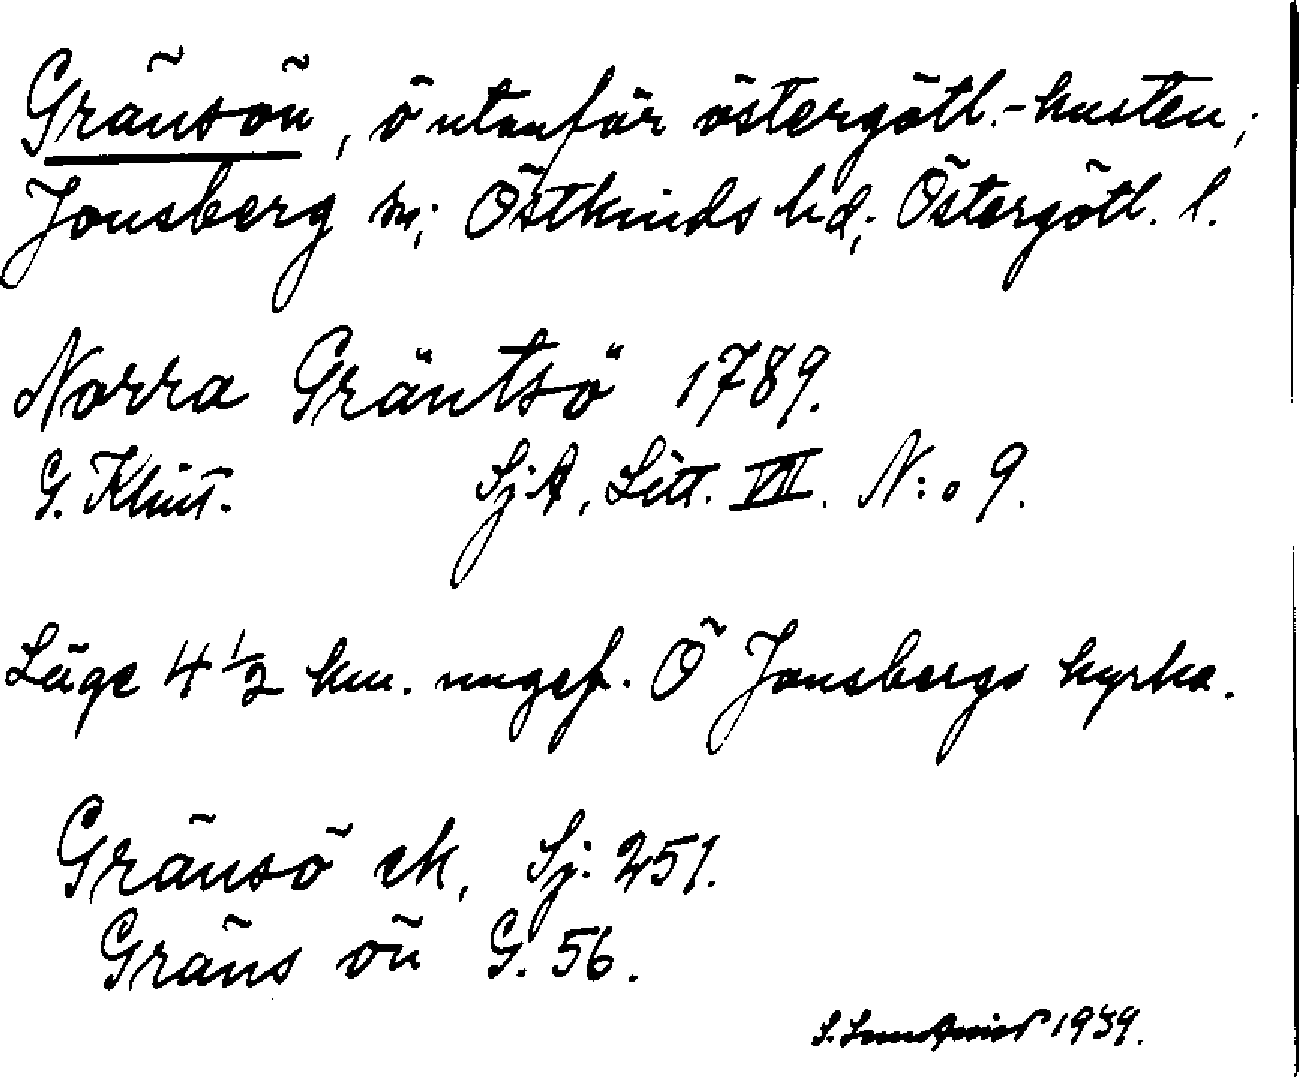 Gränsön, ö utanför östergötl.-kusten;
Jonsberg sn; Östkinds hd; Östergötl. l.
Norra Gräntsö 1789.
G. Klint. SjA, Litt. VII. N:o 9.
Läge 4 1/2 km. ungef. Ö Jonsbergs kyrka.
Gränsö ek, Sj. 251.
Gräns ön G. 56.
S. 1939.